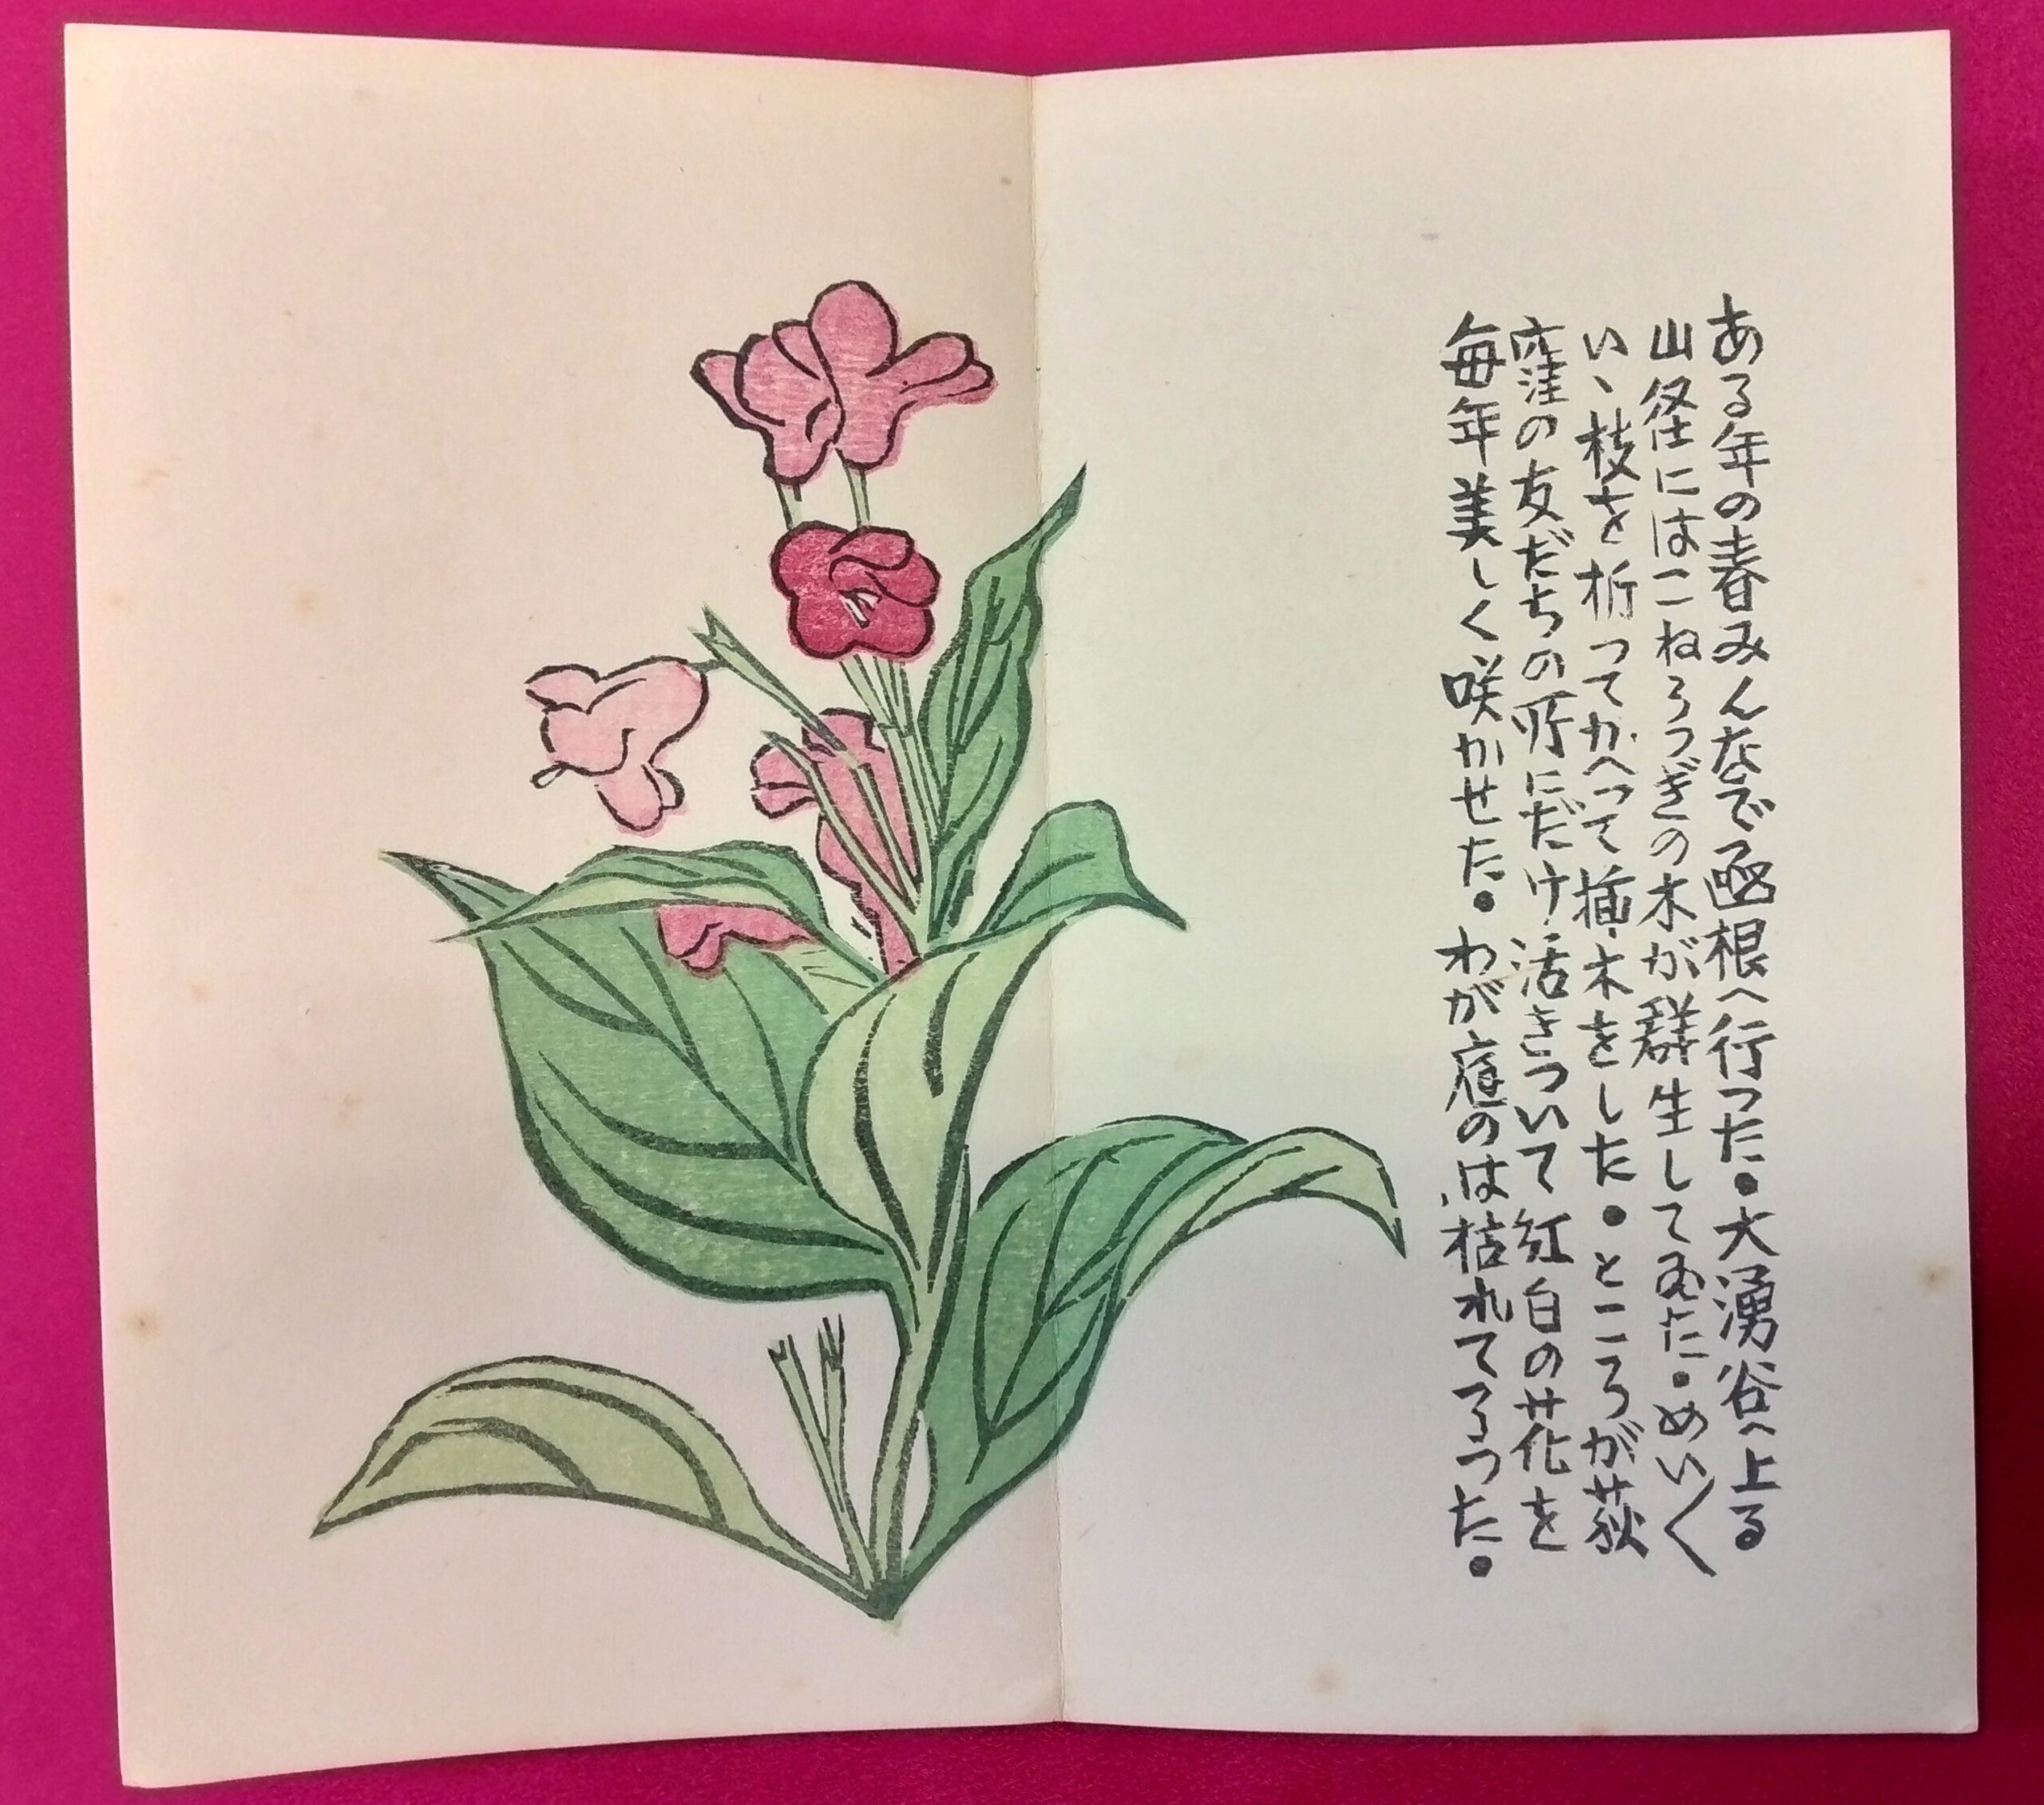 ある年の春みんなで函根へ行つた。大涌谷へ上る
山径にはこねうつぎの木が群生してゐた。めい〱
いゝ枝を折つてかへつて挿木をした。ところが荻
窪の友だちの所にだけ活きついて紅白の花を
毎年美しく咲かせた。わが庭のは枯れてうつた。